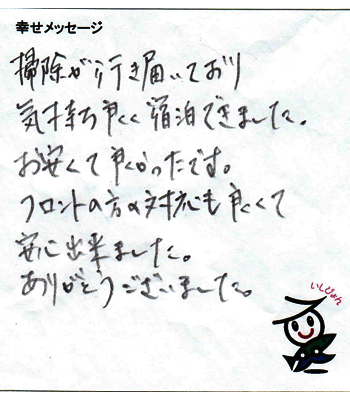 幸せメッセージ
掃除が行き届いており
気持ち良く宿泊できました。
お安くて良かったです。
フロントの方の対応も良くて
安心出来ました。
ありがとうございました。
いしぴょん